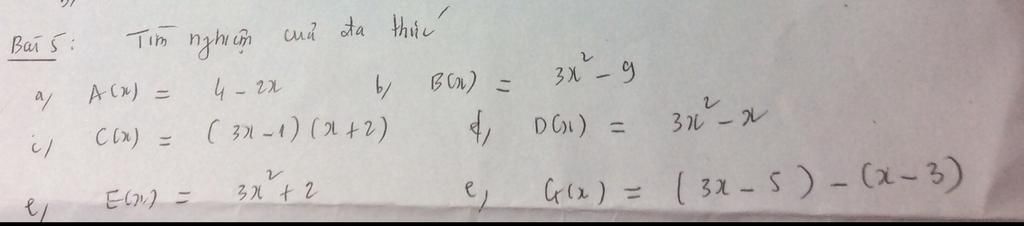 Bài 5: Tìm nghiệm của đa thức
a, A(x) = 4 - 2x b, B(x) = 3x² - 9
c, C(x) = (3x - 1)(x + 2) d, D(x) = 3x² - x
e, E(x) = 3x² + 2 e, G(x) = (3x - 5) - (x - 3)